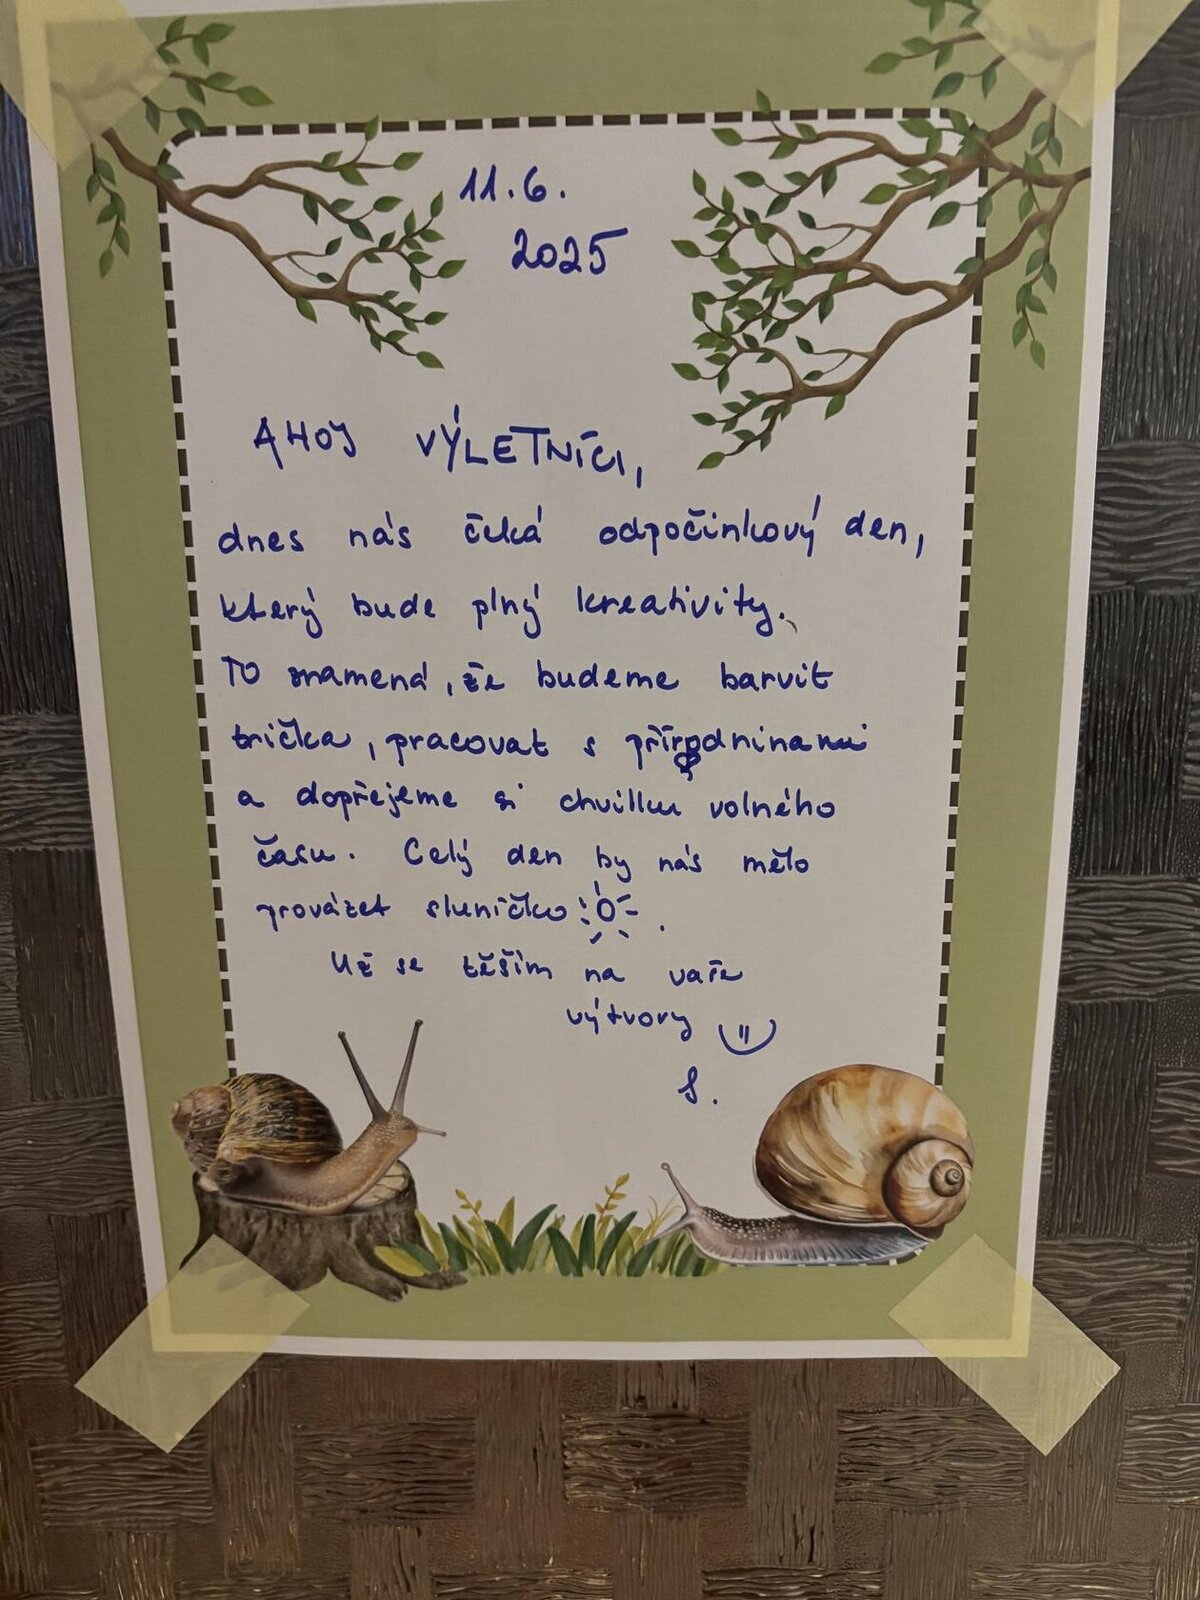 11.6.
2025
AHOJ VÝLETNÍCI,
dnes nás čeká odpočinkový den,
který bude plný kreativity.
TO znamená, že budeme barvit
trička, pracovat s přírodninami
a dopřejeme si chvilku volného
času. Celý den by nás mělo
provázet sluníčko.
Už se těším na vaře
výtvory
S.